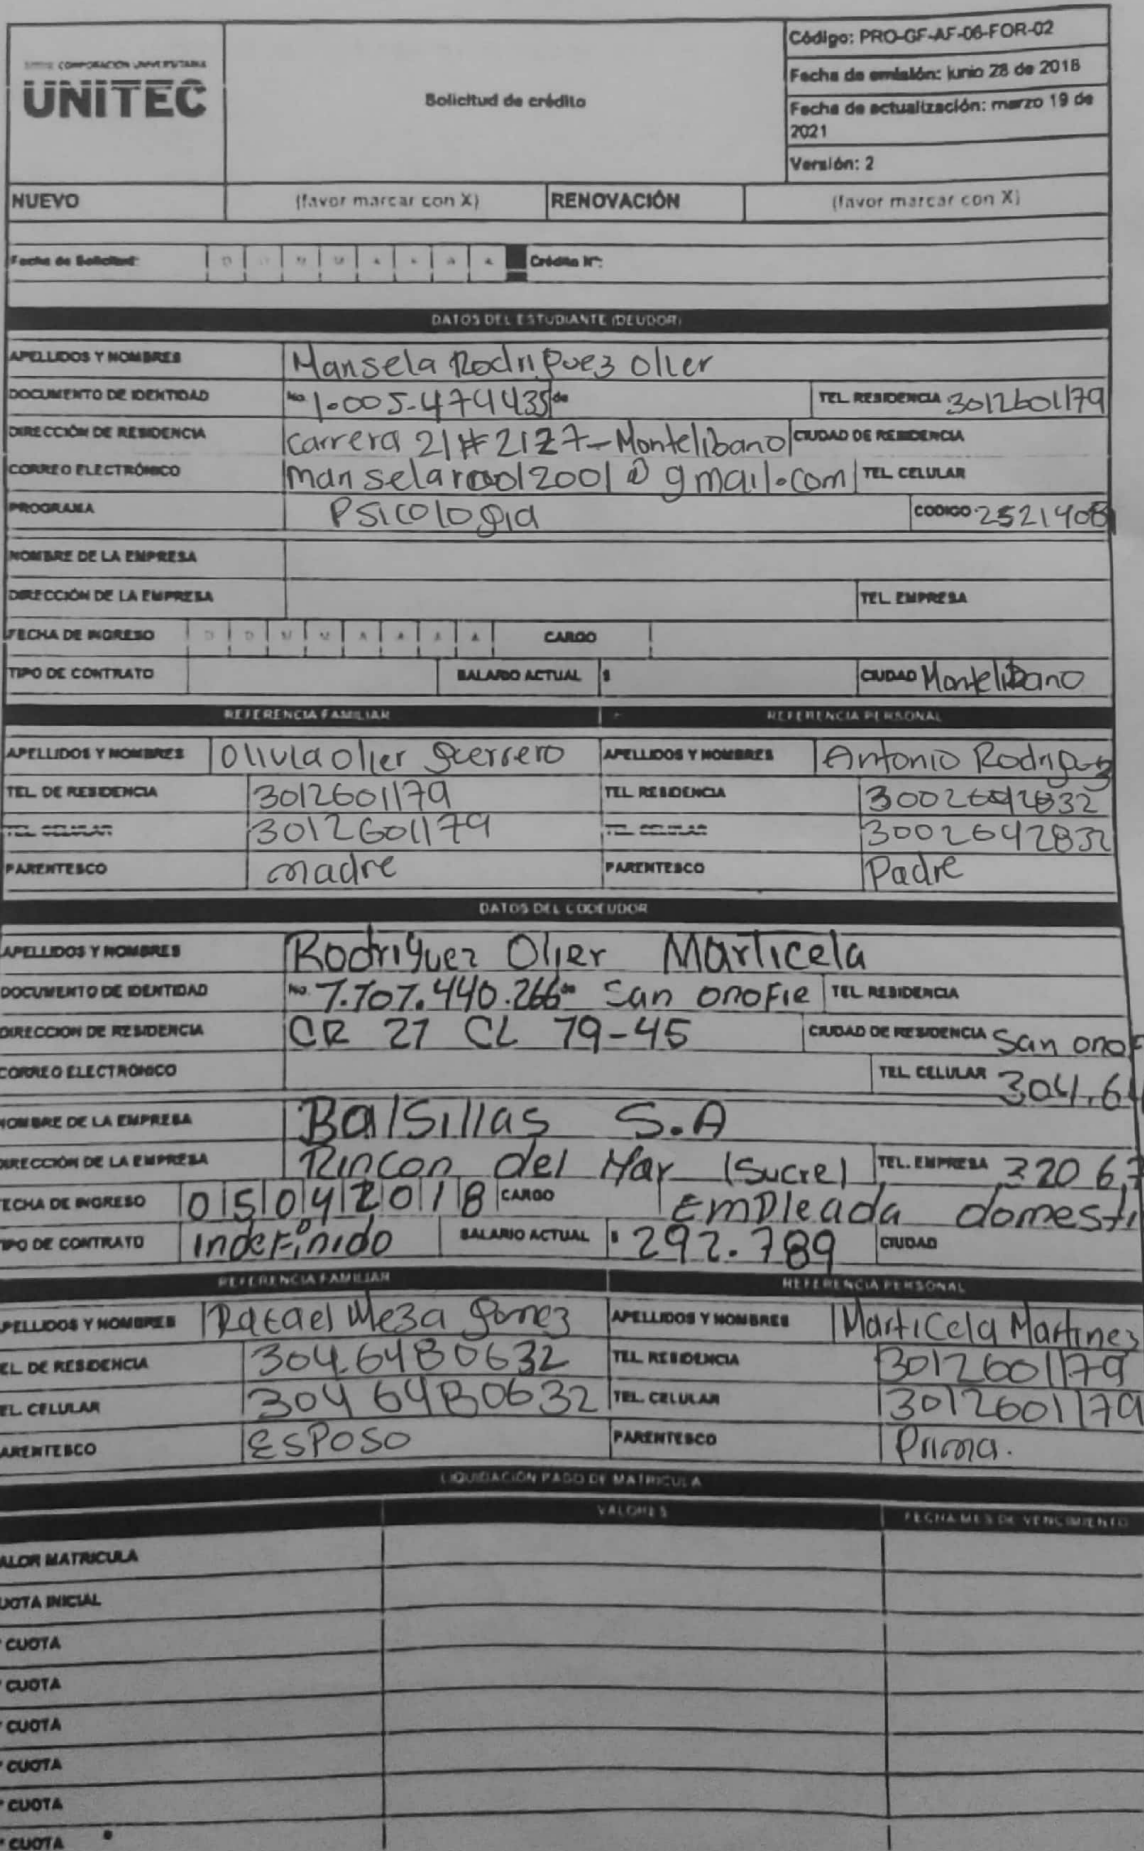 CORPORACIÓN UNIVERSITARIA
UNITEC
Solicitud de crédito
Código: PRO-GF-AF-06-FOR-02
Fecha de emisión: junio 28 de 2018
Fecha de actualización: marzo 19 de
2021
Versión: 2
NUEVO (favor marcar con X) RENOVACIÓN (favor marcar con X)
Fecha de Solicitud: D D M M A A A A Crédito N°:
DATOS DEL ESTUDIANTE (DEUDOR)
APELLIDOS Y NOMBRES Marisela Rodriguez Olier
DOCUMENTO DE IDENTIDAD No. 1.005.474435 de TEL. RESIDENCIA 3012601179
DIRECCIÓN DE RESIDENCIA carrera 21 # 21 27 - Montelibano CIUDAD DE RESIDENCIA
CORREO ELECTRÓNICO @gmail.com TEL. CELULAR
PROGRAMA Psicologia CODIGO 2521408
NOMBRE DE LA EMPRESA
DIRECCIÓN DE LA EMPRESA TEL. EMPRESA
FECHA DE INGRESO D D M M A A A A CARGO
TIPO DE CONTRATO SALARIO ACTUAL $ CIUDAD Montelibano
REFERENCIA FAMILIAR REFERENCIA PERSONAL
APELLIDOS Y NOMBRES Olivia olier guerrero APELLIDOS Y NOMBRES Antonio Rodriguez
TEL. DE RESIDENCIA 3012601179 TEL. RESIDENCIA 3002642832
TEL. CELULAR 3012601179 TEL. CELULAR 3002642832
PARENTESCO madre PARENTESCO Padre
DATOS DEL CODEUDOR
APELLIDOS Y NOMBRES Rodriguez Olier Marlicela
DOCUMENTO DE IDENTIDAD No. 1.107.440.266 de San onofre TEL. RESIDENCIA
DIRECCION DE RESIDENCIA CR 21 CL 19-45 CIUDAD DE RESIDENCIA San onof
CORREO ELECTRÓNICO TEL. CELULAR 304.64
NOMBRE DE LA EMPRESA BalSillas S.A
DIRECCIÓN DE LA EMPRESA Rincon del Mar (Sucre) TEL. EMPRESA 320 67
FECHA DE INGRESO 05042018 CARGO Empleada domesti
TIPO DE CONTRATO indefinido SALARIO ACTUAL $ 292.789 CIUDAD
REFERENCIA FAMILIAR REFERENCIA PERSONAL
APELLIDOS Y NOMBRES Rafael Meza gomez APELLIDOS Y NOMBRES Marticela Martinez
TEL. DE RESIDENCIA 304 6480632 TEL. RESIDENCIA 3012601179
TEL. CELULAR 304 6480632 TEL. CELULAR 3012601179
PARENTESCO ESPOSO PARENTESCO Prima.
LIQUIDACIÓN PAGO DE MATRICULA
VALORES FECHA MES DE VENCIMIENTO
VALOR MATRICULA
CUOTA INICIAL
CUOTA
CUOTA
CUOTA
CUOTA
CUOTA
CUOTA